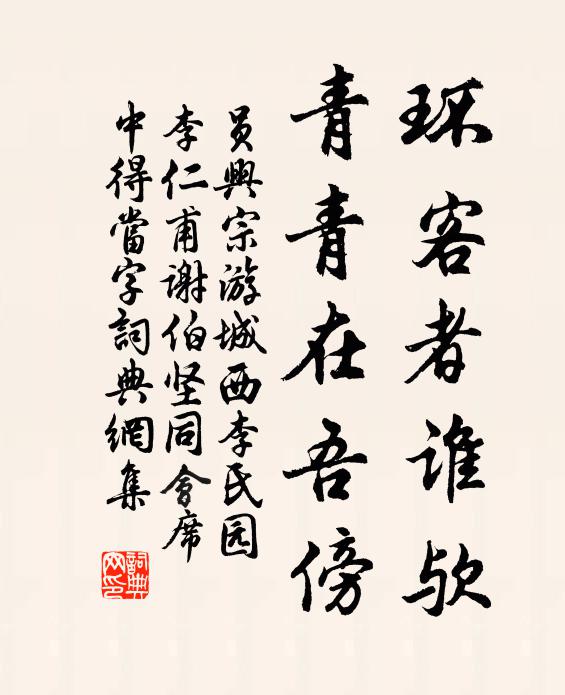 环客者谁欤
青青在吾傍
员興宗游城西李民园
李仁甫谢伯坚同會席
中得當字詞典網集
詞典网印